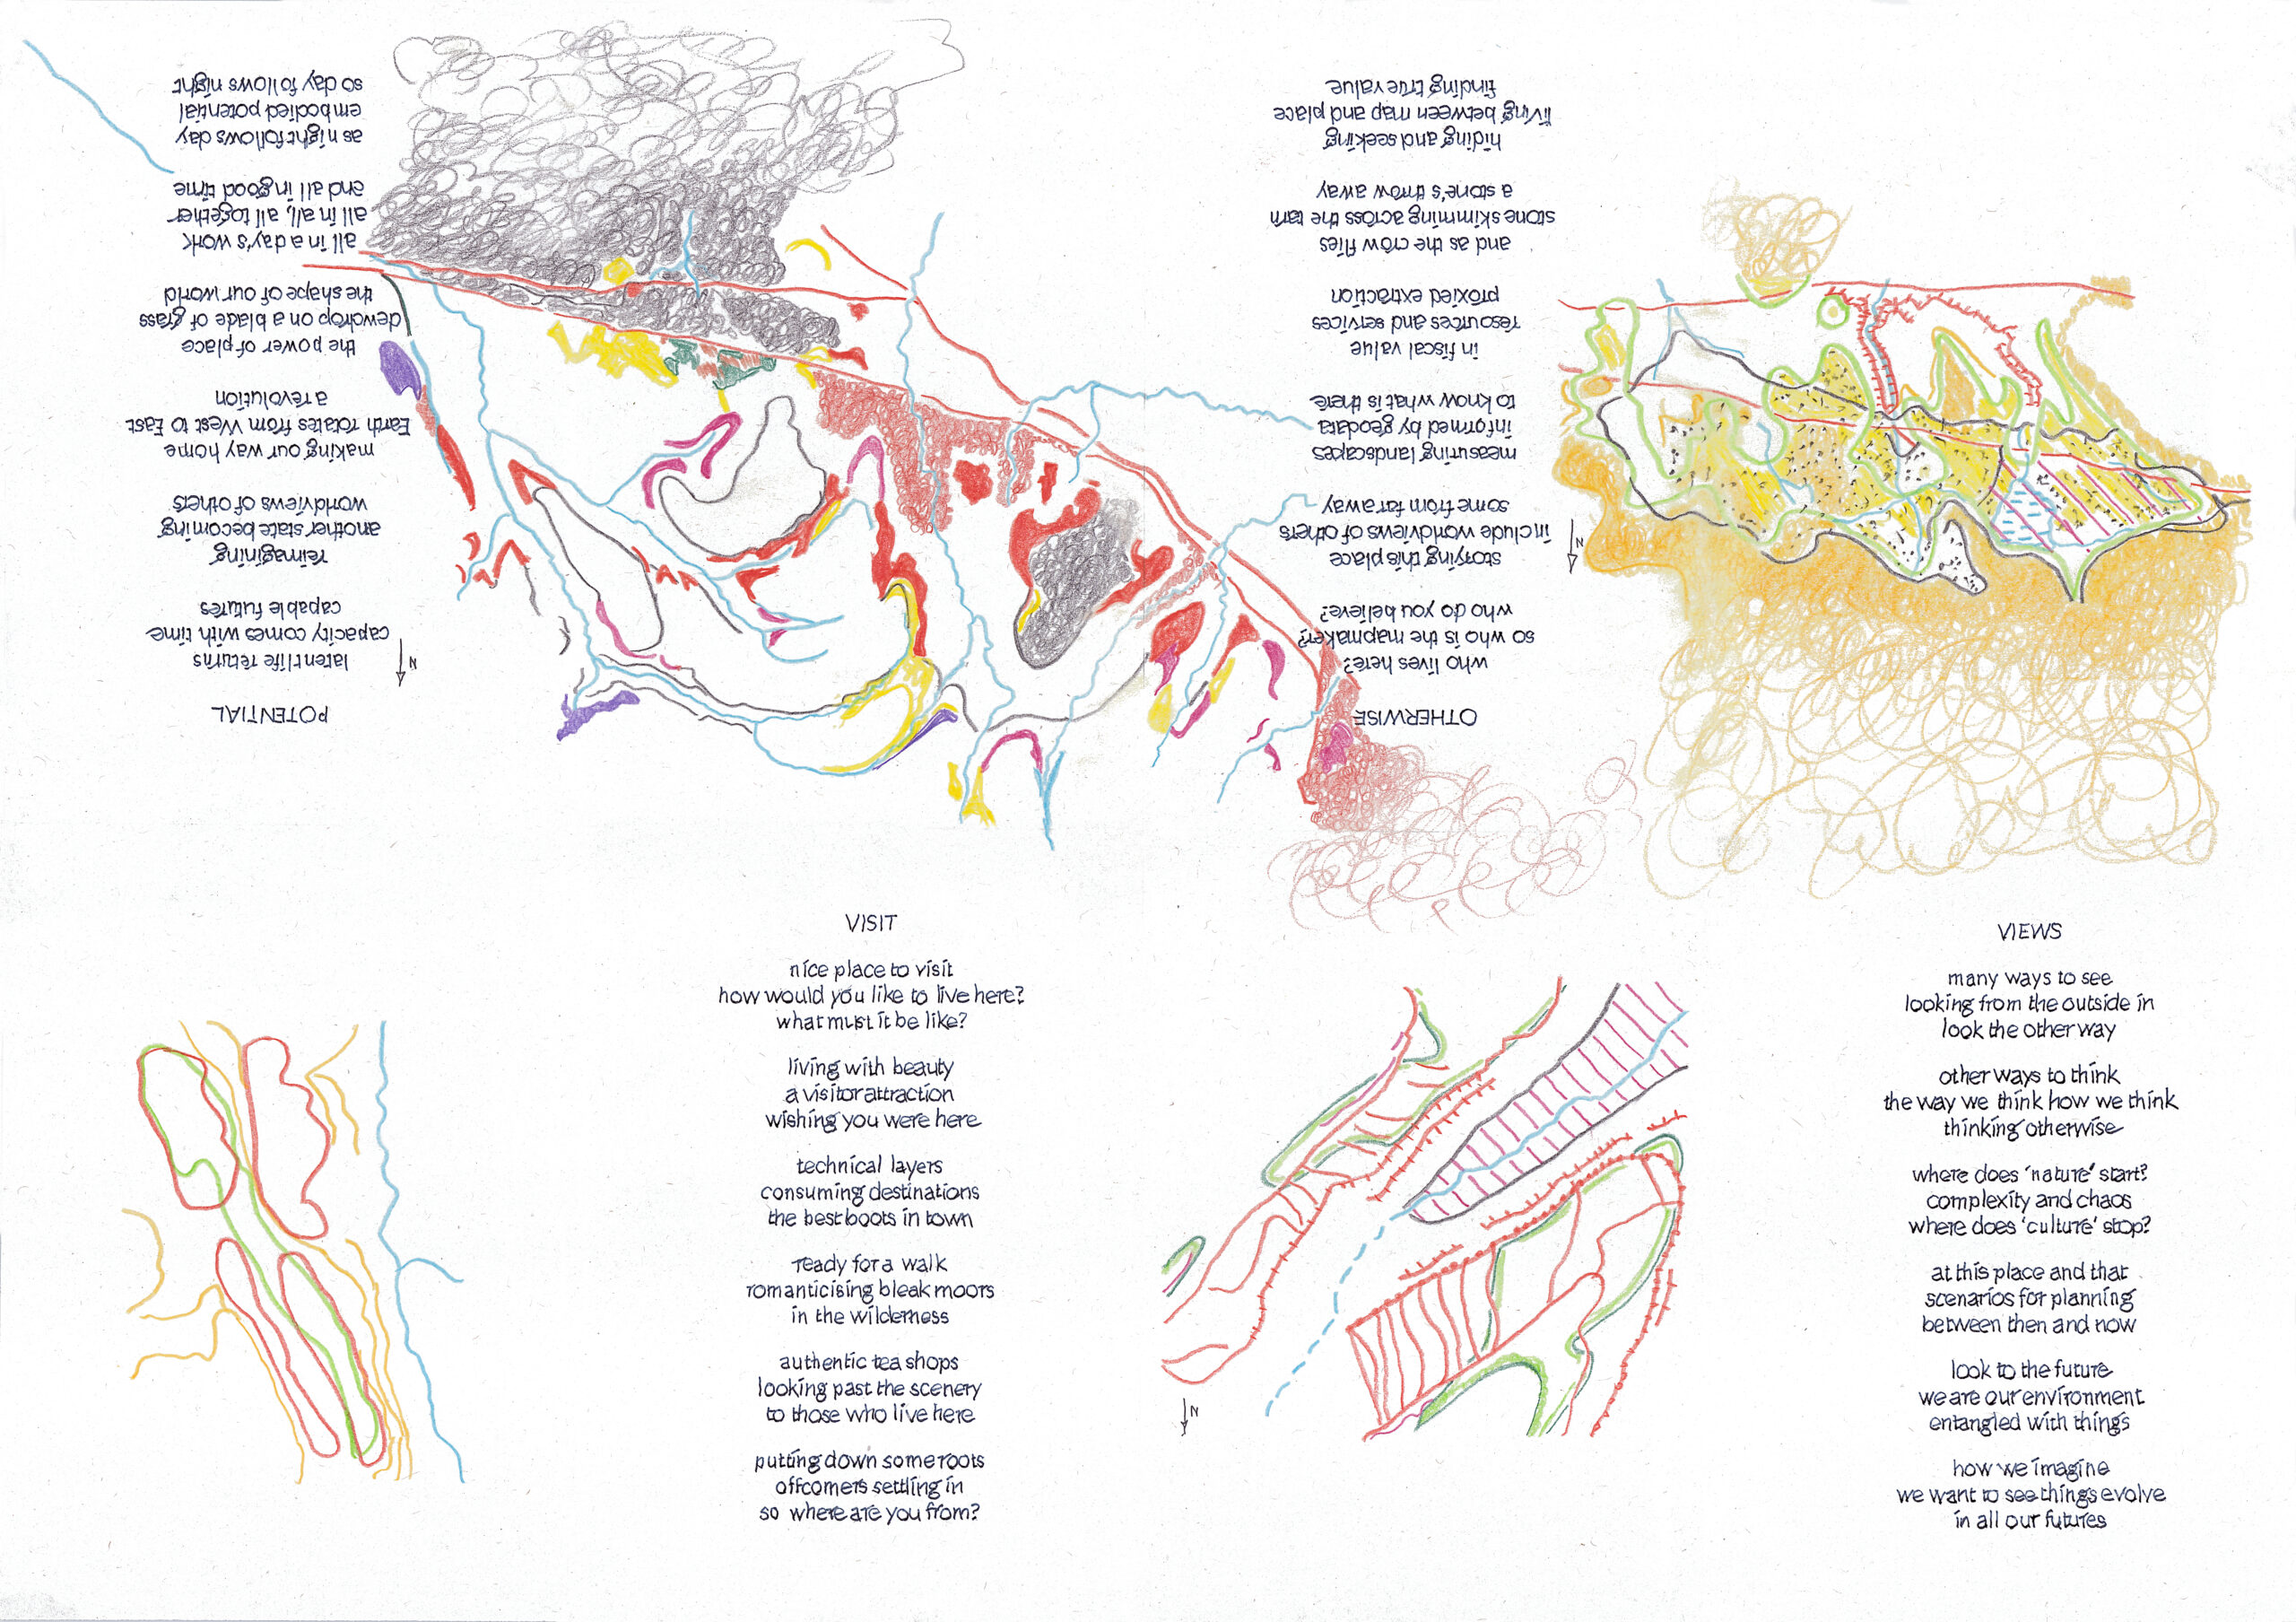 VISIT
nice place to visit
how would you like to live here?
what must it be like?
living with beauty
a visitor attraction
wishing you were here
technical layers
consuming destinations
the best boots in town
ready for a walk
romanticising bleak moors
in the wilderness
authentic tea shops
looking past the scenery
to those who live here
putting down some roots
offcomers settling in
so where are you from?
VIEWS
many ways to see
looking from the outside in
look the other way
other ways to think
the way we think how we think
thinking otherwise
where does 'nature' start?
complexity and chaos
where does 'culture' stop?
at this place and that
scenarios for planning
between then and now
look to the future
we are our environment
entangled with things
how we imagine
we want to see things evolve
in all our futures
N
OTHERWISE
who lives here?
so who is the mapmaker?
who do you believe?
storying this place
include worldviews of others
some from far away
measuring landscapes
informed by geodata
to know what is there
in fiscal value
resources and services
proxied extraction
and as the crow flies
stone skimming across the tarn
a stone's throw away
hiding and seeking
living between map and place
finding true value
N
POTENTIAL
latent life returns
capacity comes with time
capable futures
reimagining
another state becoming
worldviews of others
making our way home
Earth rotates from West to East
a revolution
the power of place
dewdrop on a blade of grass
the shape of our world
all in a day's work
all in all, all together
and all in good time
as night follows day
embodied potential
so day follows night
N